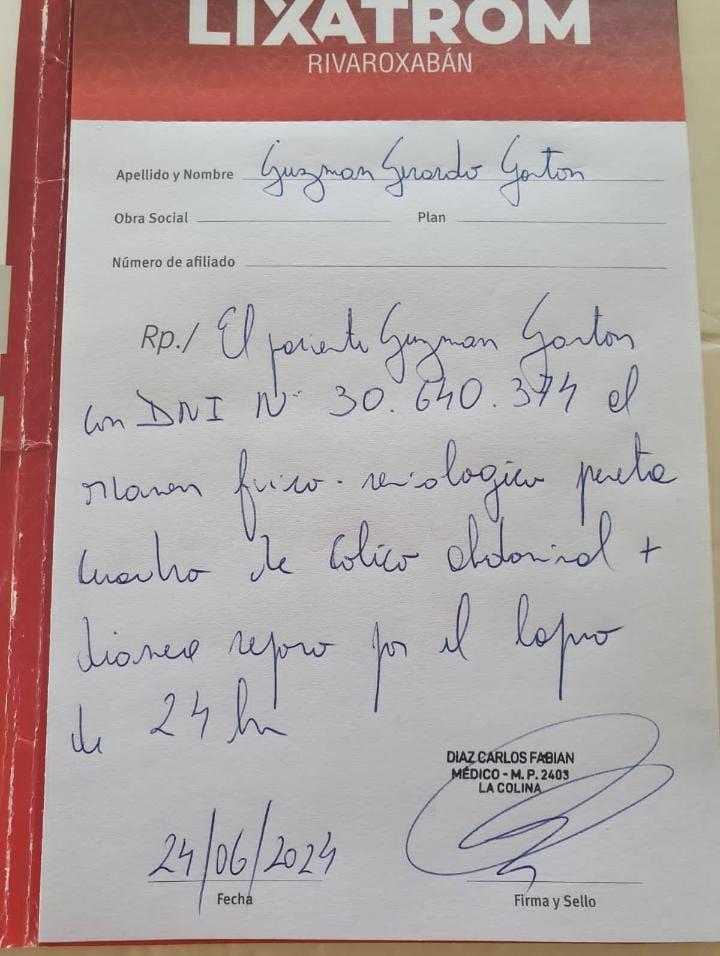 LIXATROM
RIVAROXABÁN
Apellido y Nombre Guzman Gerardo Gaston
Obra Social Plan
Número de afiliado
Rp./ El paciente Guzman Gaston
con DNI N° 30.640.374 el
examen fisico-semiologico
cuadro de colico abdominal +
diarrea reposo por el lapso
de 24 hs
DIAZ CARLOS FABIAN
MÉDICO - M. P. 2403
LA COLINA
24/06/2024
Fecha
Firma y Sello